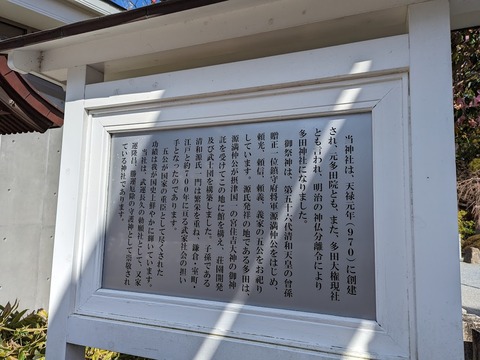 当神社は、天禄元年(970)に創建
され、元多田院とも、また、多田大権現社
とも言われ、明治の神仏分離令により
多田神社になりました。
御祭神は、第五十六代清和天皇の曾孫
贈正一位鎮守府将軍源満仲公をはじめ、
頼光、頼信、頼義、義家の五公をお祀り
しています。源氏発祥の地である多田は、
源満仲公が摂津国一の宮住吉大神の御神
託を受けてこの地に館を構え、荘園開発
及び武士団を構築しました。子孫である
清和源氏一門は繁栄を重ね、鎌倉・室町・
江戸と約700年に亘る武家社会の担い
手となったのであります。
五公が国家の重臣として尽くされた
功績は我が国史上鮮やかに輝いています。
当社は、武運長久の祈願社として、又家
運隆昌、勝運厄除の守護神として崇敬され
ている神社であります。